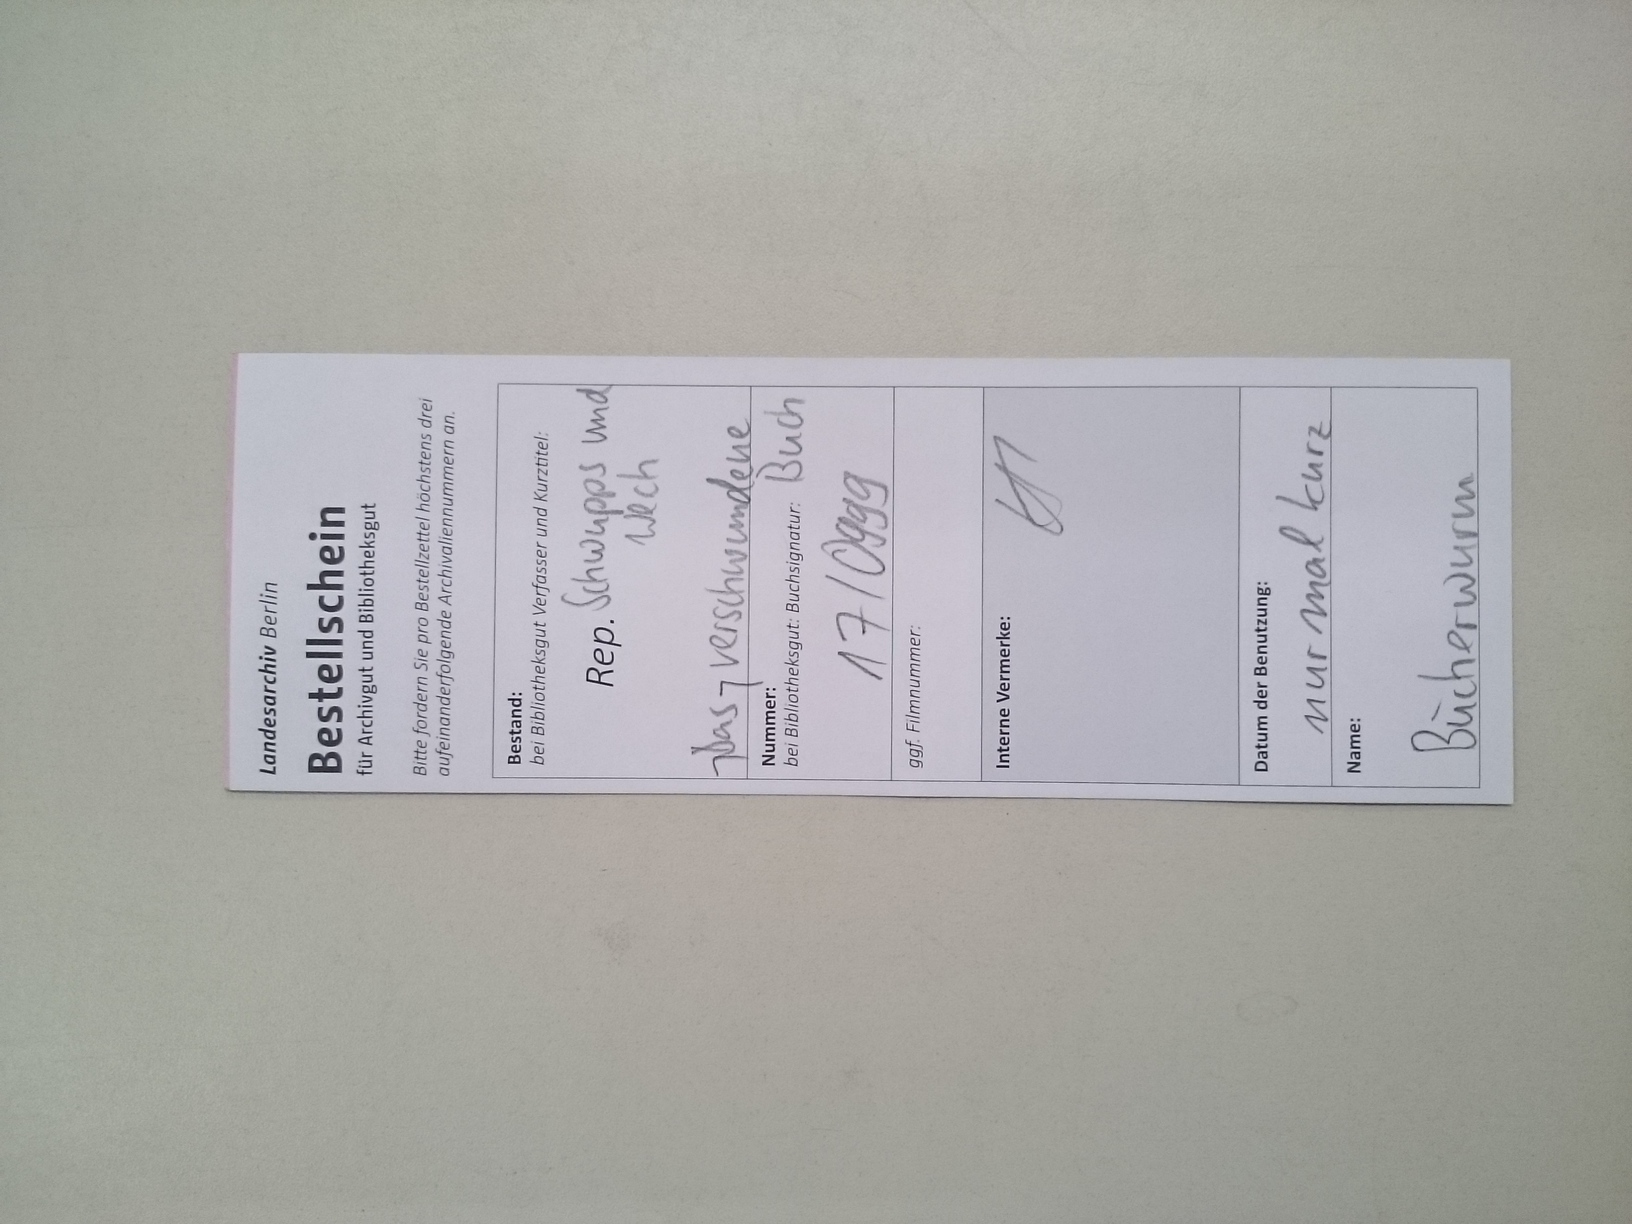 Landesarchiv Berlin
Bestellschein
für Archivgut und Bibliotheksgut
Bitte fordern Sie pro Bestellzettel höchstens drei
aufeinanderfolgende Archivaliennummern an.
Bestand:
bei Bibliotheksgut Verfasser und Kurztitel:
Rep. Schwupps und
Wech
¬Das¬ verschwundene
Buch
Nummer:
bei Bibliotheksgut: Buchsignatur:
17/0999
ggf. Filmnummer:
Interne Vermerke:
Datum der Benutzung:
nur mal kurz
Name:
Bücherwurm